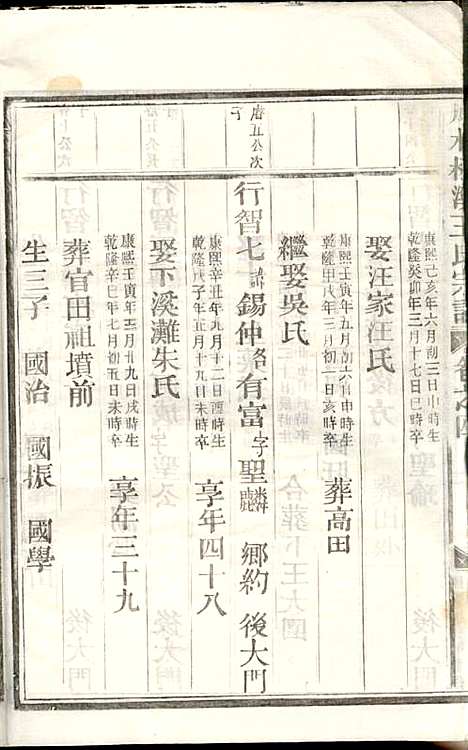 康熙己亥年六月初三日申時生
乾隆癸卯年三月十七日巳時卒
娶汪家汪氏
康熙壬寅年五月初六日申時生
乾隆甲戌年三月初一日亥時卒
葬高田
繼娶吳氏
唐五公次子
行智七諱錫仲名有富字聖麟 鄉約 後大門
康熙辛丑年九月十二日酉時生
乾隆戊子年五月十九日未時卒
享年四十八
娶下溪灘朱氏
康熙壬寅年三月廿九日戌時生
乾隆辛巳年七月初五日未時卒
享年三十九
葬官田祖墳前
生三子 國治 國振 國學